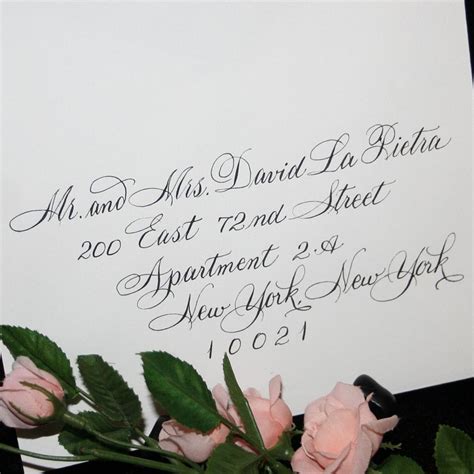 Mr. and Mrs. David La Pietra
200 East 72nd Street
Apartment 2.A
New York, New York
10021